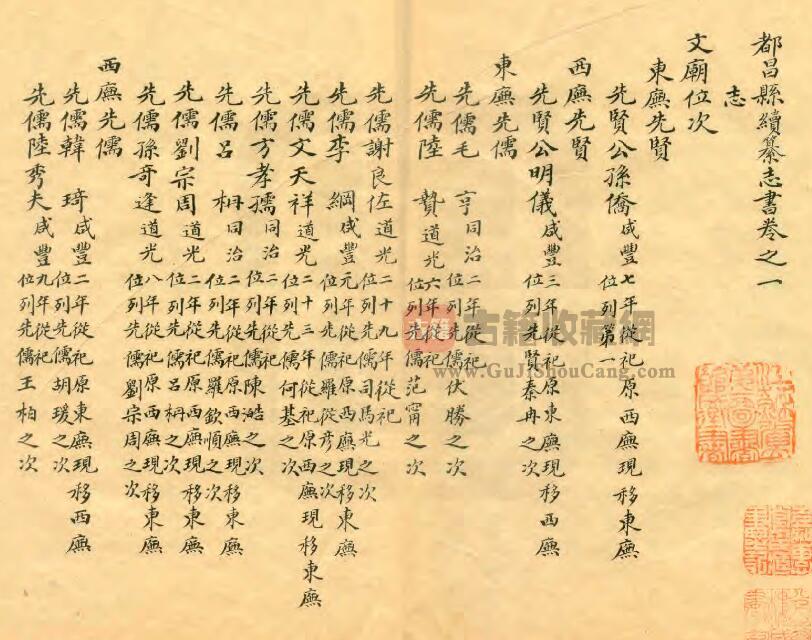 都昌縣續纂志書卷之一
志
文廟位次
東廡先賢
先賢公孫僑咸豐七年從祀原西廡現移東廡
位列第一
西廡先賢
先賢公明儀咸豐三年從祀原東廡現移西廡
位列先賢秦冉之次
東廡先儒
先儒毛亨同治二年從祀
位列先儒伏勝之次
先儒陸贄道光六年從祀
位列先儒范甯之次
先儒謝良佐道光二十九年從祀
位列先儒司馬光之次
先儒李綱咸豐元年從祀原西廡現移東廡
位列先儒羅從彥之次
先儒文天祥道光二十三年從祀原西廡現移東廡
位列先儒何基之次
先儒方孝孺同治二年從祀
位列先儒陳澔之次
先儒呂柟同治二年從祀原西廡現移東廡
位列先儒羅欽順之次
先儒劉宗周道光二年從祀原西廡現移東廡
位列先儒呂柟之次
先儒孫奇逢道光八年從祀原西廡現移東廡
位列先儒劉宗周之次
西廡先儒
先儒韓琦咸豐二年從祀原東廡現移西廡
位列先儒胡瑗之次
先儒陸秀夫咸豐九年從祀
位列先儒王柏之次
古籍收藏網
www.GuJiShouCang.com